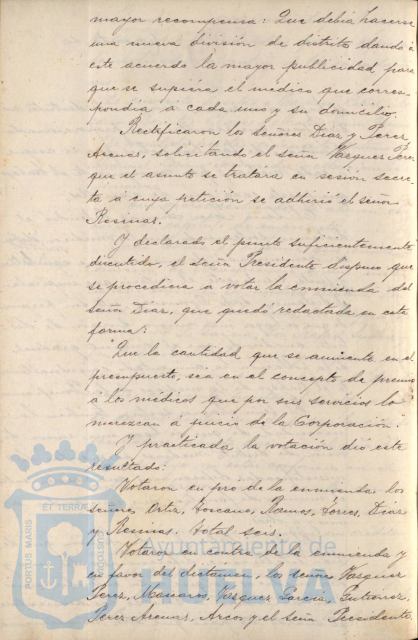 mayor recompensa: Que debía hacerse
una nueva división de distritos dando á
este acuerdo la mayor publicidad para
que se supiera el médico que corres-
pondia á cada uno y su domicilio.
Rectificaron los señores Diaz y Perez
Arenas, solicitando el señor Vazquez Perez
que el asunto se tratara en sesión secre-
ta á cuya petición se adhirió el señor
Resinas.
Y declarado el punto suficientemente
discutido, el señor Presidente dispuso que
se procediera á votar la enmienda del
señor Diaz, que quedó redactada en esta
forma:
"Que la cantidad que se aumente en el
presupuesto, sea en el concepto de premio
á los médicos que por sus servicios lo
merezcan á juicio de la Corporación."
Y practicada la votación dió este
resultado:
Votaron en pró de la enmienda los
señores Ortiz, Toscano, Ramos, Torres, Diaz
y Resinas. Total seis.
Votaron en contra de la enmienda y
en favor del dictamen, los señores Vazquez
Perez, Vazquez Garcia, Gutierrez,
Perez Arenas, Arcos y el señor Presidente
PORTUS MARIS
ET TERRAE
CUSTODIA
Ayuntamiento de
HUELVA